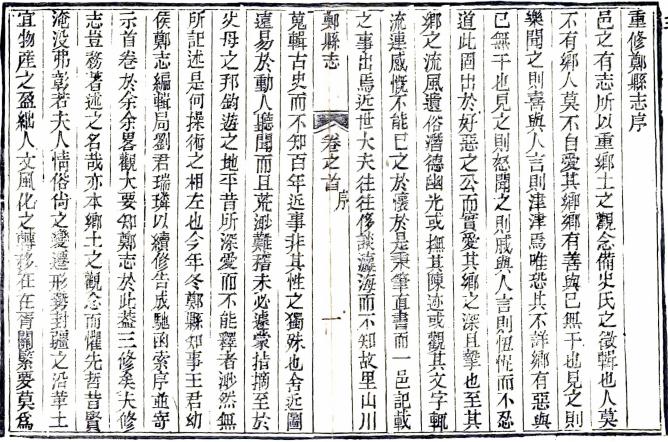 重修鄭縣志序
邑之有志所以重鄉土之觀念備史氏之徵輯也人莫
不有鄉人莫不自愛其鄉鄉有善與己無干也見之則
樂聞之則喜與人言則津津焉唯恐其不詳鄉有惡與
己無干也見之則怒聞之則戚與人言則忸怩而不忍
道此固出於好惡之公而實愛其鄉之深且摯也至其
鄉之流風遺俗潛德幽光或撫其陳迹或觀其文字輒
流連感慨不能已之於懷於是秉筆直書而一邑記載
之事出焉近世大夫往往侈談瀛海而不知故里山川
鄭縣志 卷之首 序 一
蒐輯古史而不知百年近事非其性之獨殊也舍近圖
遠易於動人聽聞而且荒渺難稽未必遽蒙指摘至於
父母之邦釣遊之地平昔所深愛而不能釋者渺然無
所記述是何操術之相左也今年冬鄭縣知事王君幼
侯鄭志編輯局劉君瑞璘以續修告成馳函索序並寄
示首卷於余余畧觀大要知鄭志於此蓋三修矣夫修
志豈務著述之名哉亦本鄉土之觀念而懼先哲昔賢
淹沒弗彰若夫人情俗尚之變遷形勢封疆之沿革土
宜物產之盈絀人文風化之轉移在在胥關緊要莫爲